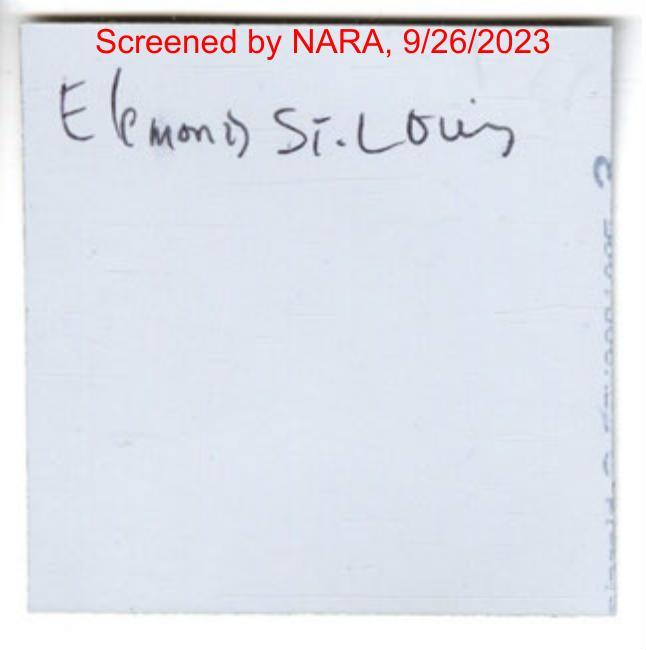 Screened by NARA, 9/26/2023
Elemonis St. Louis